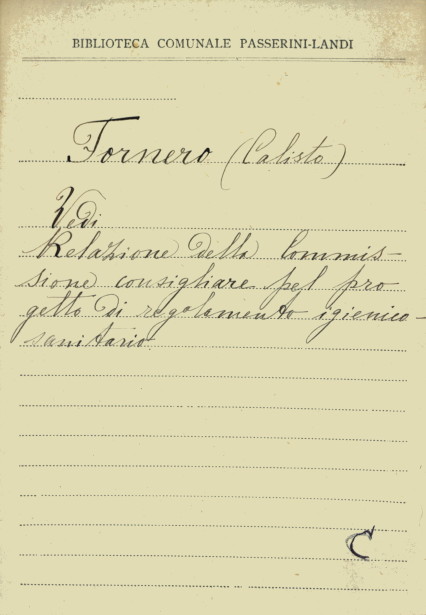 BIBLIOTECA COMUNALE PASSERINI-LANDI
Fornero (Calisto)
Vedi
Relazione della Commis-
sione consigliare pel pro
getto di regolamento igienico-
sanitario
C